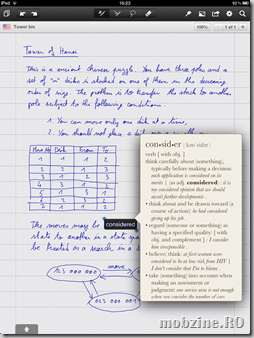 iPad 16:23 80%
Tower bis 100% 1 of 1
Tower of Hanoi
This is a ancient chinese puzzle. You have three poles and a
set of "n" disks is stacked on one of them in the decreasing
order of size. The problem is to transfer the stack to another
pole subject to the following conditions:
1. You can move only one disk at a time,
2. You should not place a
Disk From To
The moves may be considered
state to another in a state
be treated as a search in a
123 000 000 move
con•sid•er
verb [ with obj. ]
think carefully about (something),
typically before making a decision:
each application is considered on its
merits | [as adj. considered] : it is
my considered opinion that we should
await further developments.
• think about and be drawn toward (a
course of action): he had considered
giving up his job.
• regard (someone or something) as
having a specified quality: [ with
obj. and complement ] : I consider
him irresponsible.
• believe; think: at first women were
considered to be at low risk from HIV |
I don't consider that I'm to blame.
• take (something) into account when
making an assessment or
judgment: one service area is not enough
when you consider the number of cars.
mobzine.RO